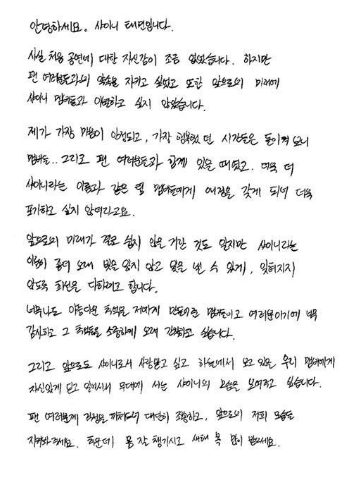 안녕하세요. 샤이니 태민입니다.
사실 처음 공연에 대한 자신감이 조금 없었습니다. 하지만
팬 여러분들과의 약속을 지키고 싶었고 또한 앞으로의 미래에
샤이니 멤버들과 이별하고 싶지 않았습니다.
제가 가장 마음이 안정되고, 가장 행복했던 시간들은 돌이켜보니
멤버들.. 그리고 팬 여러분들과 함께 있을 때였고. 더욱 더
샤이니라는 이름과 같은 멤버들에게 애정을 갖게 되어 더욱
포기하고 싶지 않더라고요.
앞으로의 미래가 결코 쉽지 않은 거란 것도 알지만 샤이니라는
이름이 좀더 오래 빛을 잃지 않고 빛을 낼 수 있게, 잊혀지지
않도록 최선을 다하려고 합니다.
너무나도 아름다운 추억을 저에게 만들어준 멤버들이고 여러분이기에 너무
감사하고 그 추억들을 소중하게 오래 간직하고 싶습니다.
그리고 앞으로도 샤이니로서 사랑받고 싶고 하늘에서 보고 있을 우리 멤버에게
자신있게 딛고 일어나서 무대에 서는 샤이니의 모습을 보여주고 싶습니다.
팬 여러분에게 걱정을 끼쳐드려 대단히 죄송하고, 앞으로의 저희 모습도
지켜봐주세요. 추운데 몸 잘 챙기시고 새해 복 많이 받으세요.